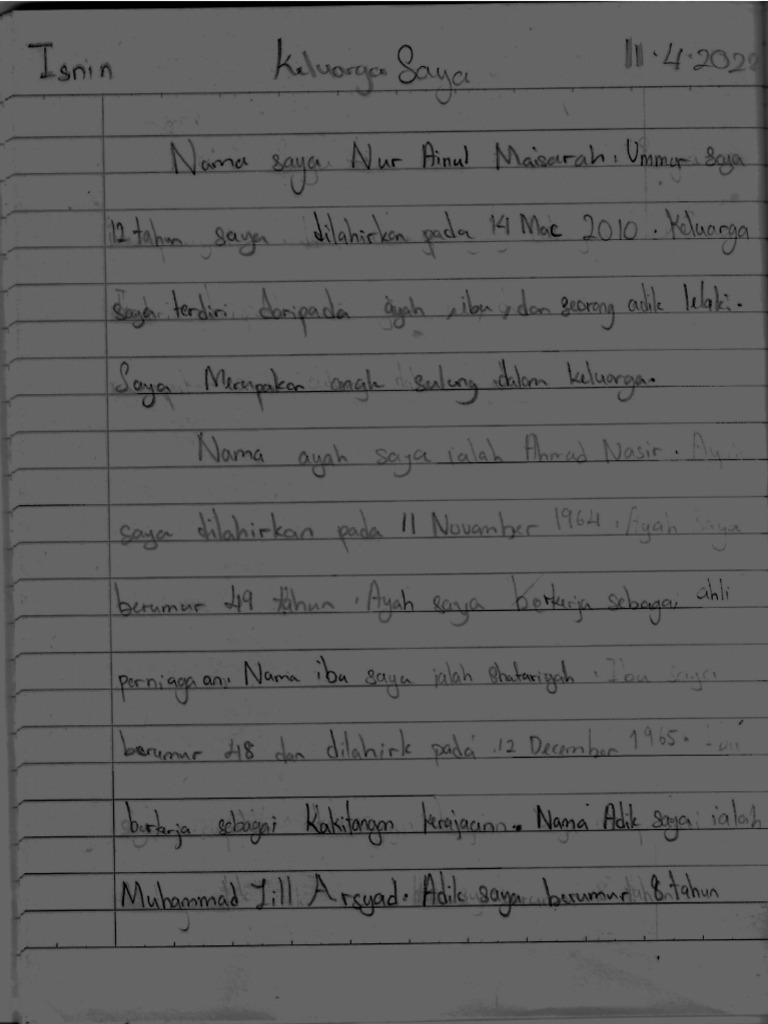 Isnin Keluarga Saya 11.4.2022
Nama saya Nur Ainul Maisarah. Ummur saya
12 tahun saya dilahirkan pada 14 Mac 2010. Keluarga
saya terdiri daripada ayah, ibu, dan seorang adik lelaki.
Saya Merupakan angh sulung dalam keluarga.
Nama ayah saya ialah Ahmad Nasir.
saya dilahirkan pada 11 November 1964. Ayah saya
berumur 49 tahun. Ayah saya berkerja sebagai ahli
perniagaan. Nama ibu saya ialah Shatariyah. Ibu saya
berumur 48 dan dilahirk pada 12 December 1965.
berkerja sebagai Kakitangan kerajaan. Nama Adik saya ialah
Muhammad Arsyad. Adik saya berumur 8 tahun